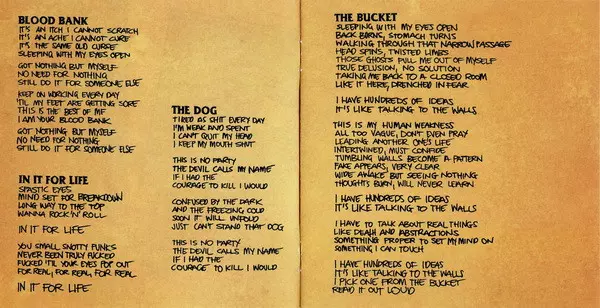 BLOOD BANK
IT'S AN ITCH I CANNOT SCRATCH
IT'S AN ACHE I CANNOT CURE
IT'S THE SAME OLD CURSE
SLEEPING WITH MY EYES OPEN
GOT NOTHING BUT MYSELF
NO NEED FOR NOTHING
STILL DO IT FOR SOMEONE ELSE
KEEP ON WORKING EVERY DAY
'TIL MY FEET ARE GETTING SORE
THIS IS THE BEST OF ME
I AM YOUR BLOOD BANK
GOT NOTHING BUT MYSELF
NO NEED FOR NOTHING
STILL DO IT FOR SOMEONE ELSE
IN IT FOR LIFE
SPASTIC EYES
MIND SET FOR BREAKDOWN
LONG WAY TO THE TOP
WANNA ROCK 'N' ROLL
IN IT FOR LIFE
YOU SMALL SNOTTY PUNKS
NEVER BEEN TRULY FUCKED
FUCKED 'TIL YOUR EYES POP OUT
FOR REAL, FOR REAL, FOR REAL
IN IT FOR LIFE
THE DOG
TIRED AS SHIT EVERY DAY
I'M WEAK AND SPENT
I CAN'T QUIT MY HEAD
I KEEP MY MOUTH SHUT
THIS IS NO PARTY
THE DEVIL CALLS MY NAME
IF I HAD THE
COURAGE TO KILL I WOULD
CONFUSED BY THE DARK
AND THE FREEZING COLD
SOON IT WILL UNFOLD
JUST CAN'T STAND THAT DOG
THIS IS NO PARTY
THE DEVIL CALLS MY NAME
IF I HAD THE
COURAGE TO KILL I WOULD
THE BUCKET
SLEEPING WITH MY EYES OPEN
BACK BURNS, STOMACH TURNS
WALKING THROUGH THAT NARROW PASSAGE
HEAD SPINS, TWISTED LIMBS
THOSE GHOSTS PULL ME OUT OF MYSELF
TRUE DELUSION, NO SOLUTION
TAKING ME BACK TO A CLOSED ROOM
LIKE IT HERE, DRENCHED IN FEAR
I HAVE HUNDREDS OF IDEAS
IT'S LIKE TALKING TO THE WALLS
THIS IS MY HUMAN WEAKNESS
ALL TOO VAGUE, DON'T EVEN PRAY
LEADING ANOTHER ONE'S LIFE
INTERTWINED, MUST CONFIDE
TUMBLING WALLS BECOME A PATTERN
FAKE APPEARS, VERY CLEAR
WIDE AWAKE BUT SEEING NOTHING
THOUGHTS BURN, WILL NEVER LEARN
I HAVE HUNDREDS OF IDEAS
IT'S LIKE TALKING TO THE WALLS
I HAVE TO TALK ABOUT REAL THINGS
LIKE DEATH AND ABSTRACTIONS
SOMETHING PROPER TO SET MY MIND ON
SOMETHING I CAN TOUCH
I HAVE HUNDREDS OF IDEAS
IT'S LIKE TALKING TO THE WALLS
I PICK ONE FROM THE BUCKET
READ IT OUT LOUD